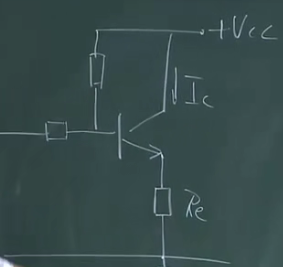 +Vcc
Ic
Re